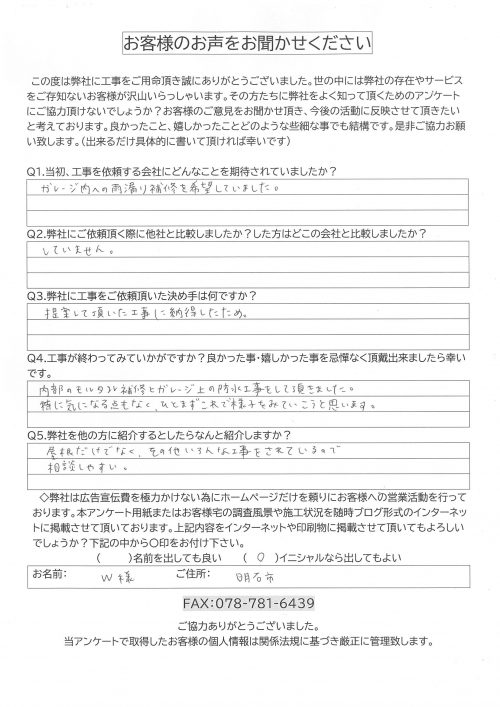 お客様のお声をお聞かせください
この度は弊社に工事をご用命頂き誠にありがとうございました。世の中には弊社の存在やサービス
をご存知ないお客様が沢山いらっしゃいます。その方たちに弊社をよく知って頂くためのアンケート
にご協力頂けないでしょうか?お客様のご意見をお聞かせ頂き、今後の活動に反映させて頂きたい
と考えております。良かったこと、嬉しかったことどのような些細な事でも結構です。是非ご協力お願
い致します。(出来るだけ具体的に書いて頂ければ幸いです)
Q1.当初、工事を依頼する会社にどんなことを期待されていましたか?
ガレージ内への雨漏り補修を希望していました。
Q2.弊社にご依頼頂く際に他社と比較しましたか?した方はどこの会社と比較しましたか?
していません。
Q3.弊社に工事をご依頼頂いた決め手は何ですか?
提案して頂いた工事に納得したため。
Q4.工事が終わってみていかがですか?良かった事・嬉しかった事を忌憚なく頂戴出来ましたら幸い
です。
内部のモルタル補修とガレージ上の防水工事をして頂きました。
特に気になる点もなく、ひとまずこれで様子をみていこうと思います。
Q5.弊社を他の方に紹介するとしたらなんと紹介しますか?
屋根だけでなく、その他いろんな工事をされているので
相談しやすい。
◇弊社は広告宣伝費を極力かけない為にホームページだけを頼りにお客様への営業活動を行って
おります。本アンケート用紙またはお客様宅の調査風景や施工状況を随時ブログ形式のインターネッ
トに掲載させて頂いております。上記内容をインターネットや印刷物に掲載させて頂いてもよろしい
でしょうか?下記の中から〇印をお付け下さい。
( )名前を出しても良い (○)イニシャルなら出してもよい
お名前: W様 ご住所: 明石市
FAX:078-781-6439
ご協力ありがとうございました。
当アンケートで取得したお客様の個人情報は関係法規に基づき厳正に管理致します。